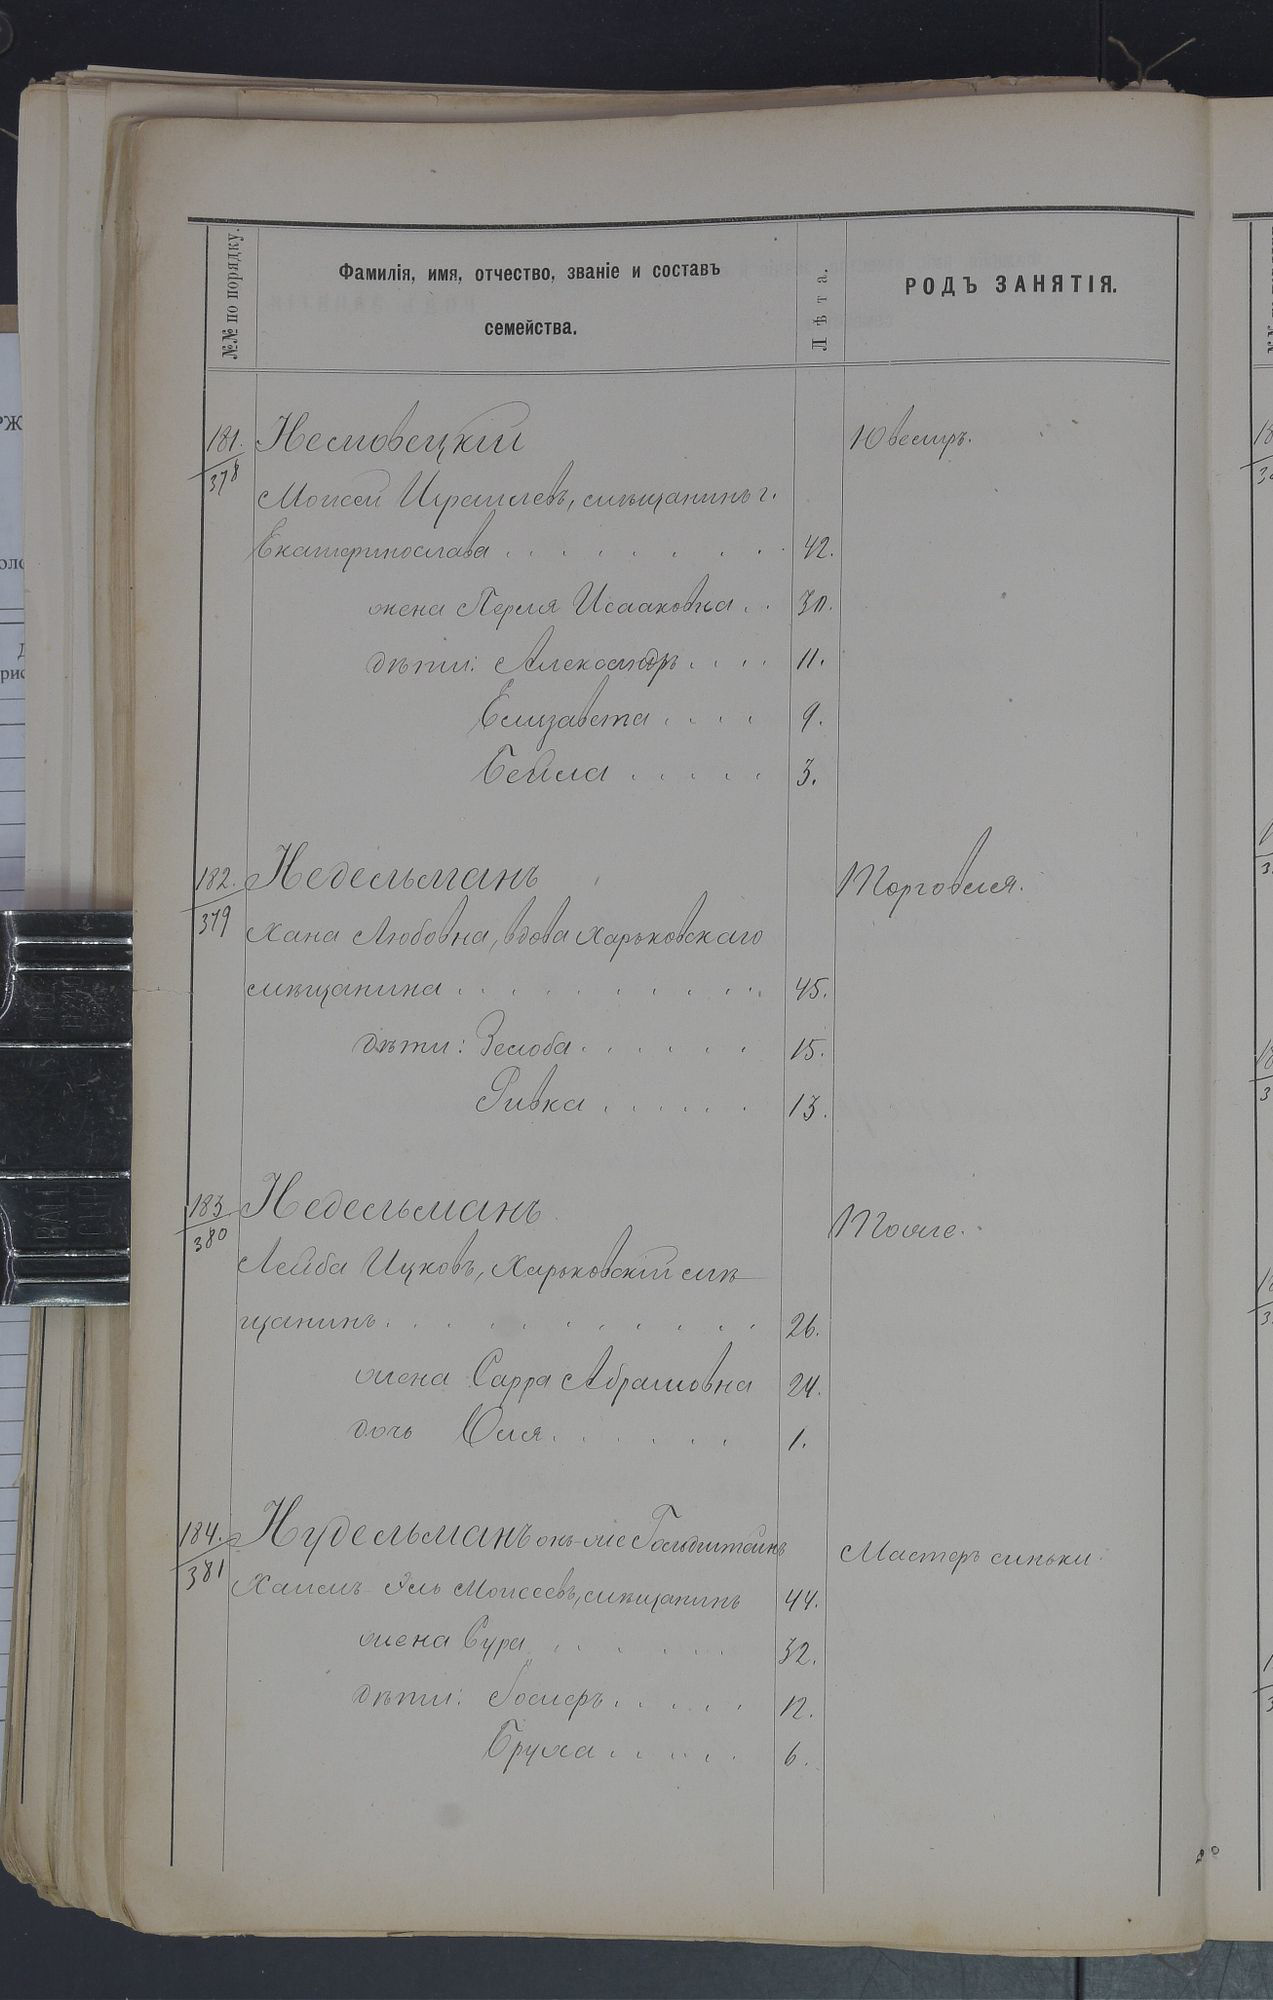 №№ по порядку.
Фамилія, имя, отчество, званіе и составъ
семейства.
Лѣта.
РОДЪ ЗАНЯТІЯ.
181. Несмовецкій Ювелиръ.
378
Моисей Израилевъ, мѣщанинъ г.
Екатеринослава . . . . . . . . . 42.
жена Перля Исааковна . . 30.
дѣти: Александръ . . . . 11.
Елизавета . . . . 9.
Бейла . . . . . 3.
182. Недельманъ Торговля.
379
Хана Любовна, вдова Харьковскаго
мѣщанина . . . . . . . . . . 45.
дѣти: Зелоба . . . . . . 15.
Ривка . . . . . . 13.
183 Недельманъ Тоже.
380
Лейба Ицковъ, Харьковскій мѣ
щанинъ . . . . . . . . . . . . 26.
жена Сарра Абрамовна 24.
дочь Юля . . . . . . 1.
184. Нудельманъ онъ-же Гольдштейнъ Мастеръ синьки.
381
Хаимъ Эль Моисеевъ, мѣщанинъ 44.
жена Сура . . . . . . 32.
дѣти: . . . . . 12.
Бруха . . . . . 6.